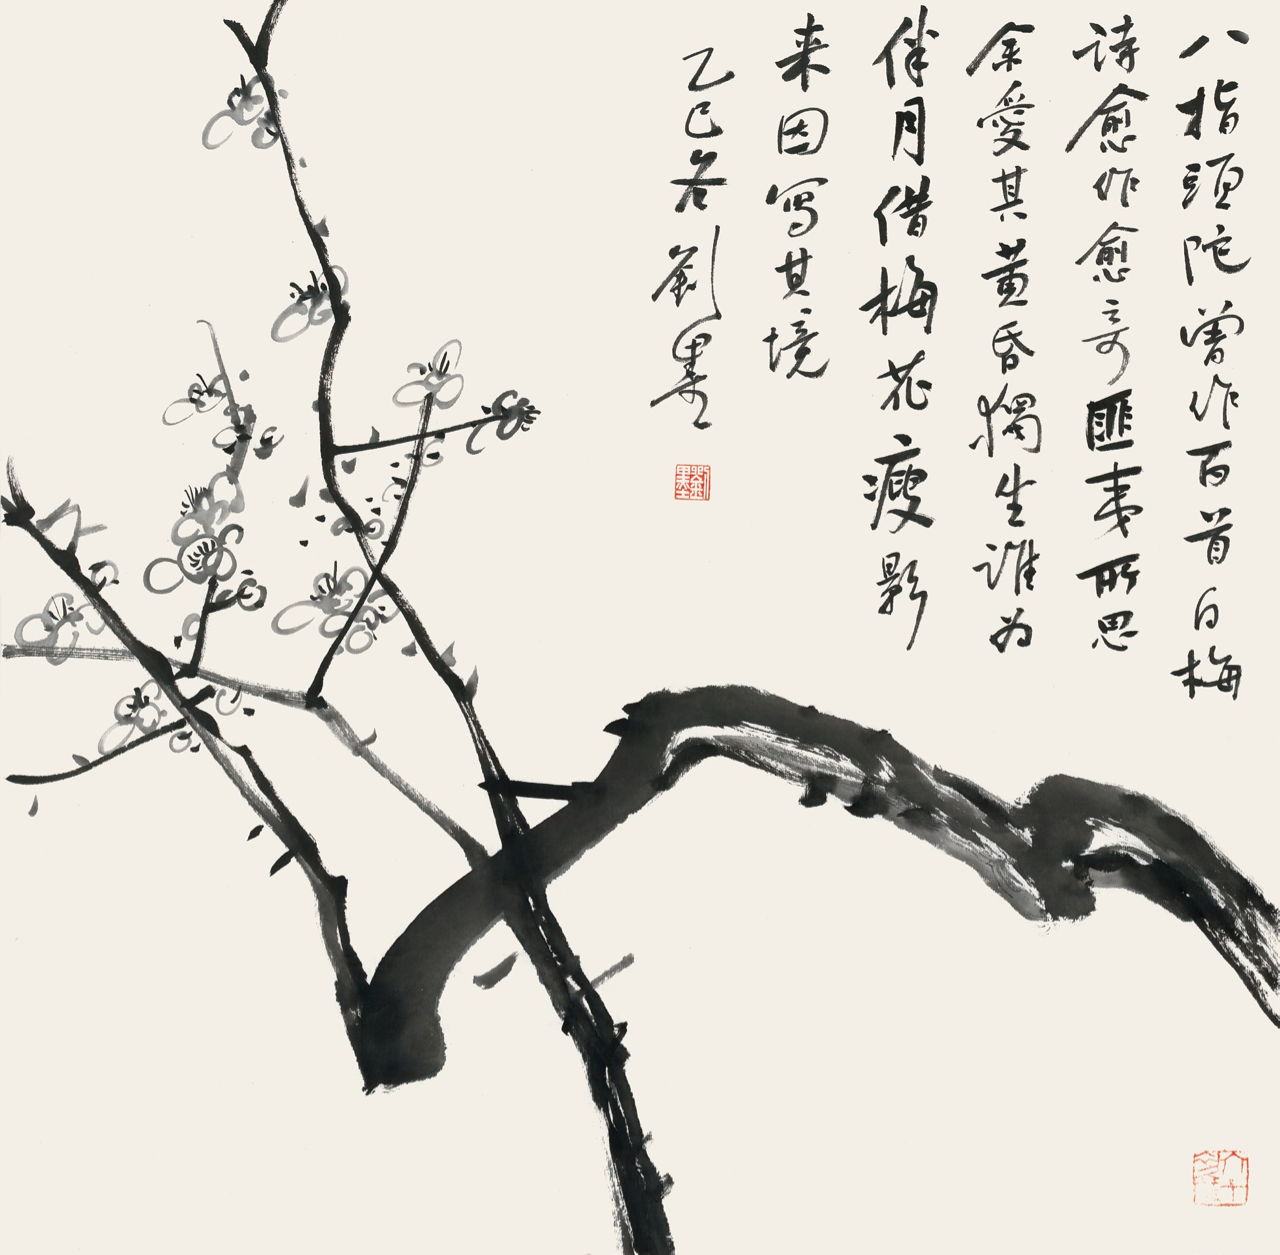 八指頭陀曾作百首白梅
詩愈作愈奇匪夷所思
余愛其黄昏獨生誰为
伴月借梅花瘦影
来因写其境
乙巳冬劉墨
劉墨